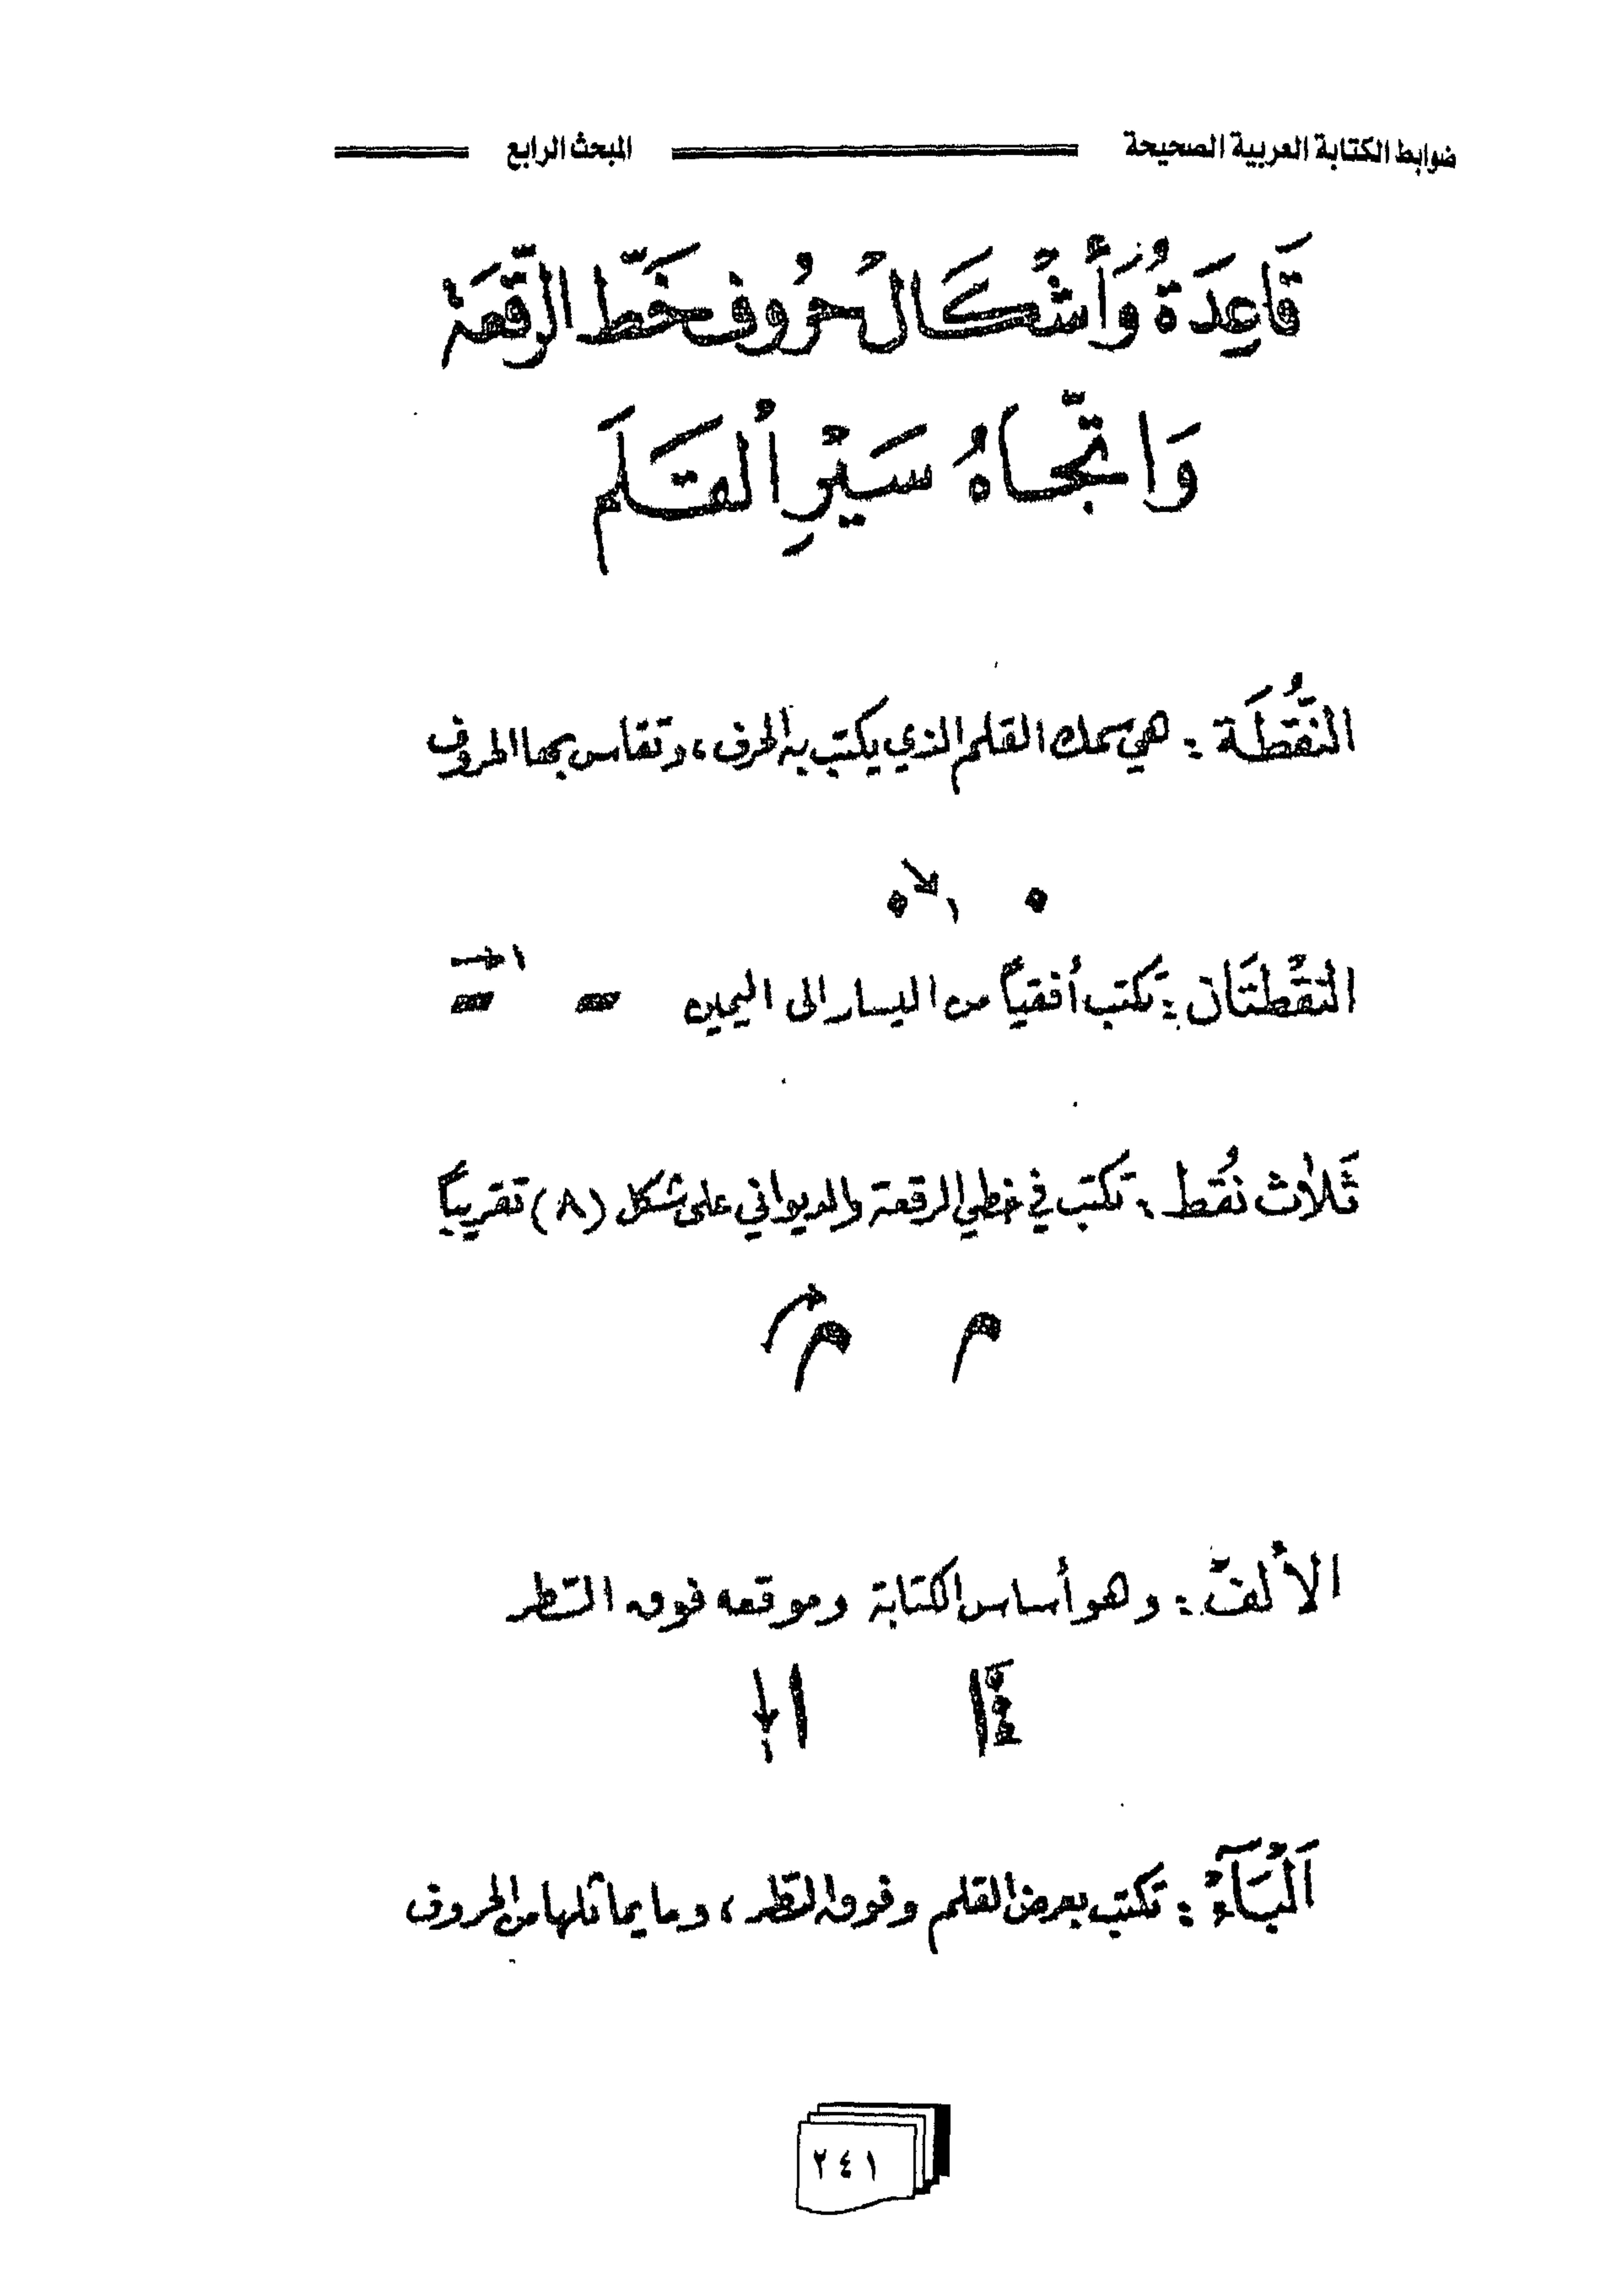 ضوابط الكتابة العربية الصحيحة المبحث الرابع
قَاعِدَةُ وَأَشْكَالُ حُرُوف خَطّ الرّقعَة
وَاتّجَاهُ سَيْرِ القَلَم
النُّقطَة : هي سمك القلم الذي يكتب به الحرف ، وتقاس بها الحروف
١
النقْطتَان : تكتب أفقياً من اليسار الى اليمين
١
ثَلاث نُقط : تكتب في خطي الرقعة والديواني على شكل (٨) تقريباً
الألفْ : وهو أساس الكتابة وموقعه فوق السّطر
٣
١
اَلْبَآء : تكتب بعرض القلم وفوق السّطر ، وما يماثلها من الحروف
٢٤١